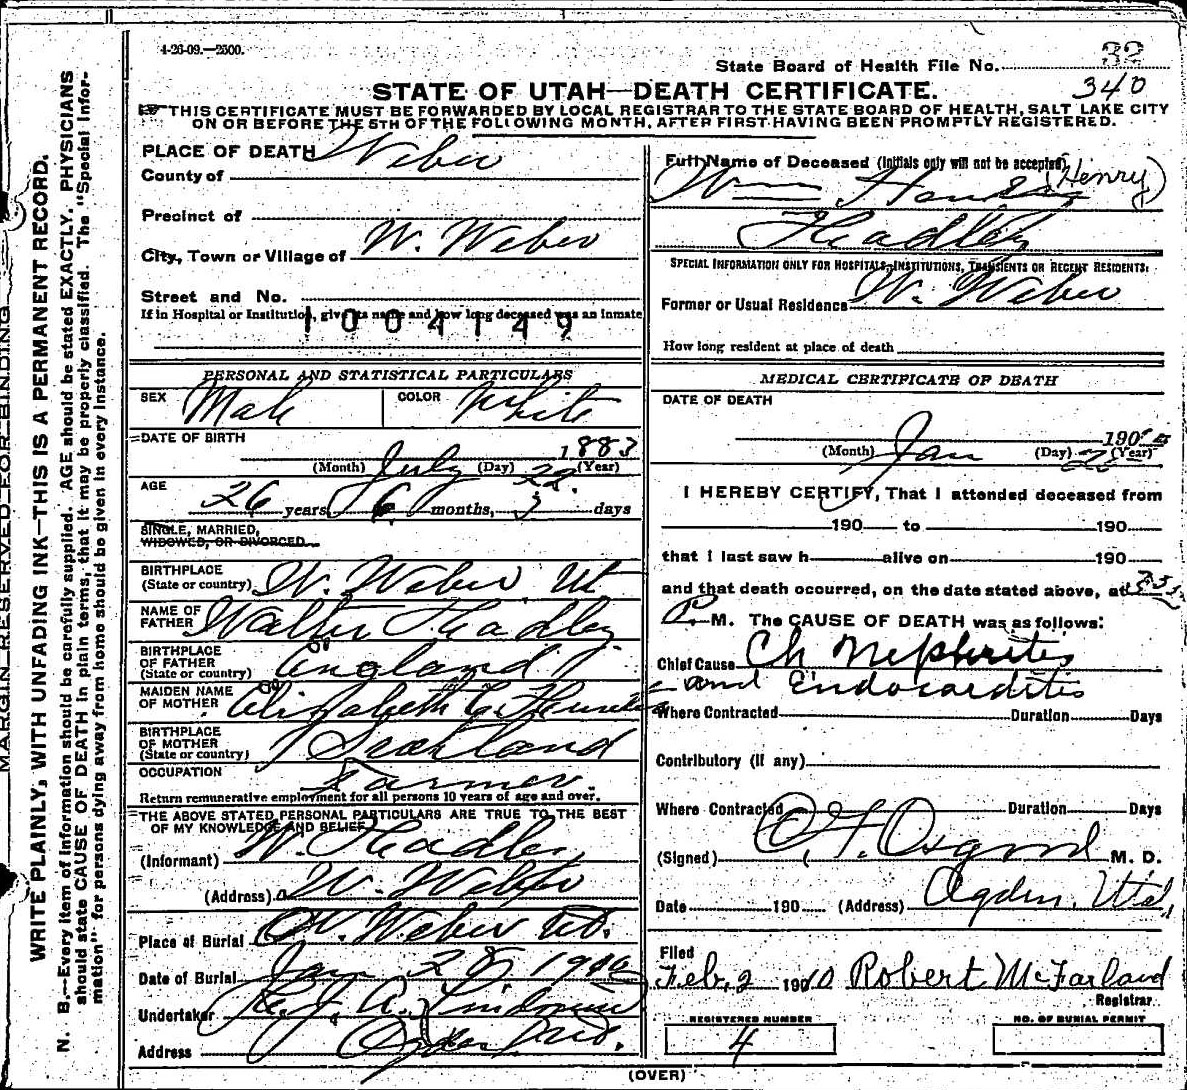 4-26-09.—2500.
32
State Board of Health File No.
340
STATE OF UTAH—DEATH CERTIFICATE.
THIS CERTIFICATE MUST BE FORWARDED BY LOCAL REGISTRAR TO THE STATE BOARD OF HEALTH, SALT LAKE CITY
ON OR BEFORE THE 5TH OF THE FOLLOWING MONTH, AFTER FIRST HAVING BEEN PROMPTLY REGISTERED.
MARGIN RESERVED FOR BINDING
WRITE PLAINLY, WITH UNFADING INK—THIS IS A PERMANENT RECORD.
N. B.—Every item of information should be carefully supplied. AGE should be stated EXACTLY. PHYSICIANS
should state CAUSE OF DEATH in plain terms, that it may be properly classified. The "Special Infor-
mation" for persons dying away from home should be given in every instance.
PLACE OF DEATH
County of Weber
Precinct of
City, Town or Village of W. Weber
Street and No.
If in Hospital or Institution, give its name and how long deceased was an inmate
1004149
PERSONAL AND STATISTICAL PARTICULARS
SEX Male COLOR White
DATE OF BIRTH
July 22 1883
(Month) (Day) (Year)
AGE
26 years, 6 months, days
SINGLE, MARRIED,
WIDOWED, OR DIVORCED
BIRTHPLACE
(State or country) W. Weber Ut
NAME OF
FATHER Walter Headley
BIRTHPLACE
OF FATHER
(State or country) England
MAIDEN NAME
OF MOTHER Elizabeth C.
BIRTHPLACE
OF MOTHER
(State or country) Scotland
OCCUPATION Farmer.
Return remunerative employment for all persons 10 years of age and over.
THE ABOVE STATED PERSONAL PARTICULARS ARE TRUE TO THE BEST
OF MY KNOWLEDGE AND BELIEF
(Informant) W. Headley
(Address) W. Weber
Place of Burial W. Weber Ut.
Date of Burial Jan 28 1910
Undertaker
Address Ogden
Full Name of Deceased (Initials only will not be accepted)
Wm (Henry)
Headley
SPECIAL INFORMATION ONLY FOR HOSPITALS, INSTITUTIONS, TRANSIENTS OR RECENT RESIDENTS:
Former or Usual Residence W. Weber
How long resident at place of death
MEDICAL CERTIFICATE OF DEATH
DATE OF DEATH
Jan 190
(Month) (Day) (Year)
I HEREBY CERTIFY, That I attended deceased from
190 to 190
that I last saw h alive on 190
and that death occurred, on the date stated above, at
P. M. The CAUSE OF DEATH was as follows:
Chief Cause Ch Nephritis
and Endocarditis
Where Contracted Duration Days
Contributory (if any)
Where Contracted Duration Days
(Signed) Osgood M. D.
Date 190 (Address) Ogden, Utah
Filed
Feb, 2 1910 Robert McFarland
Registrar
REGISTERED NUMBER
4
NO. OF BURIAL PERMIT
(OVER)